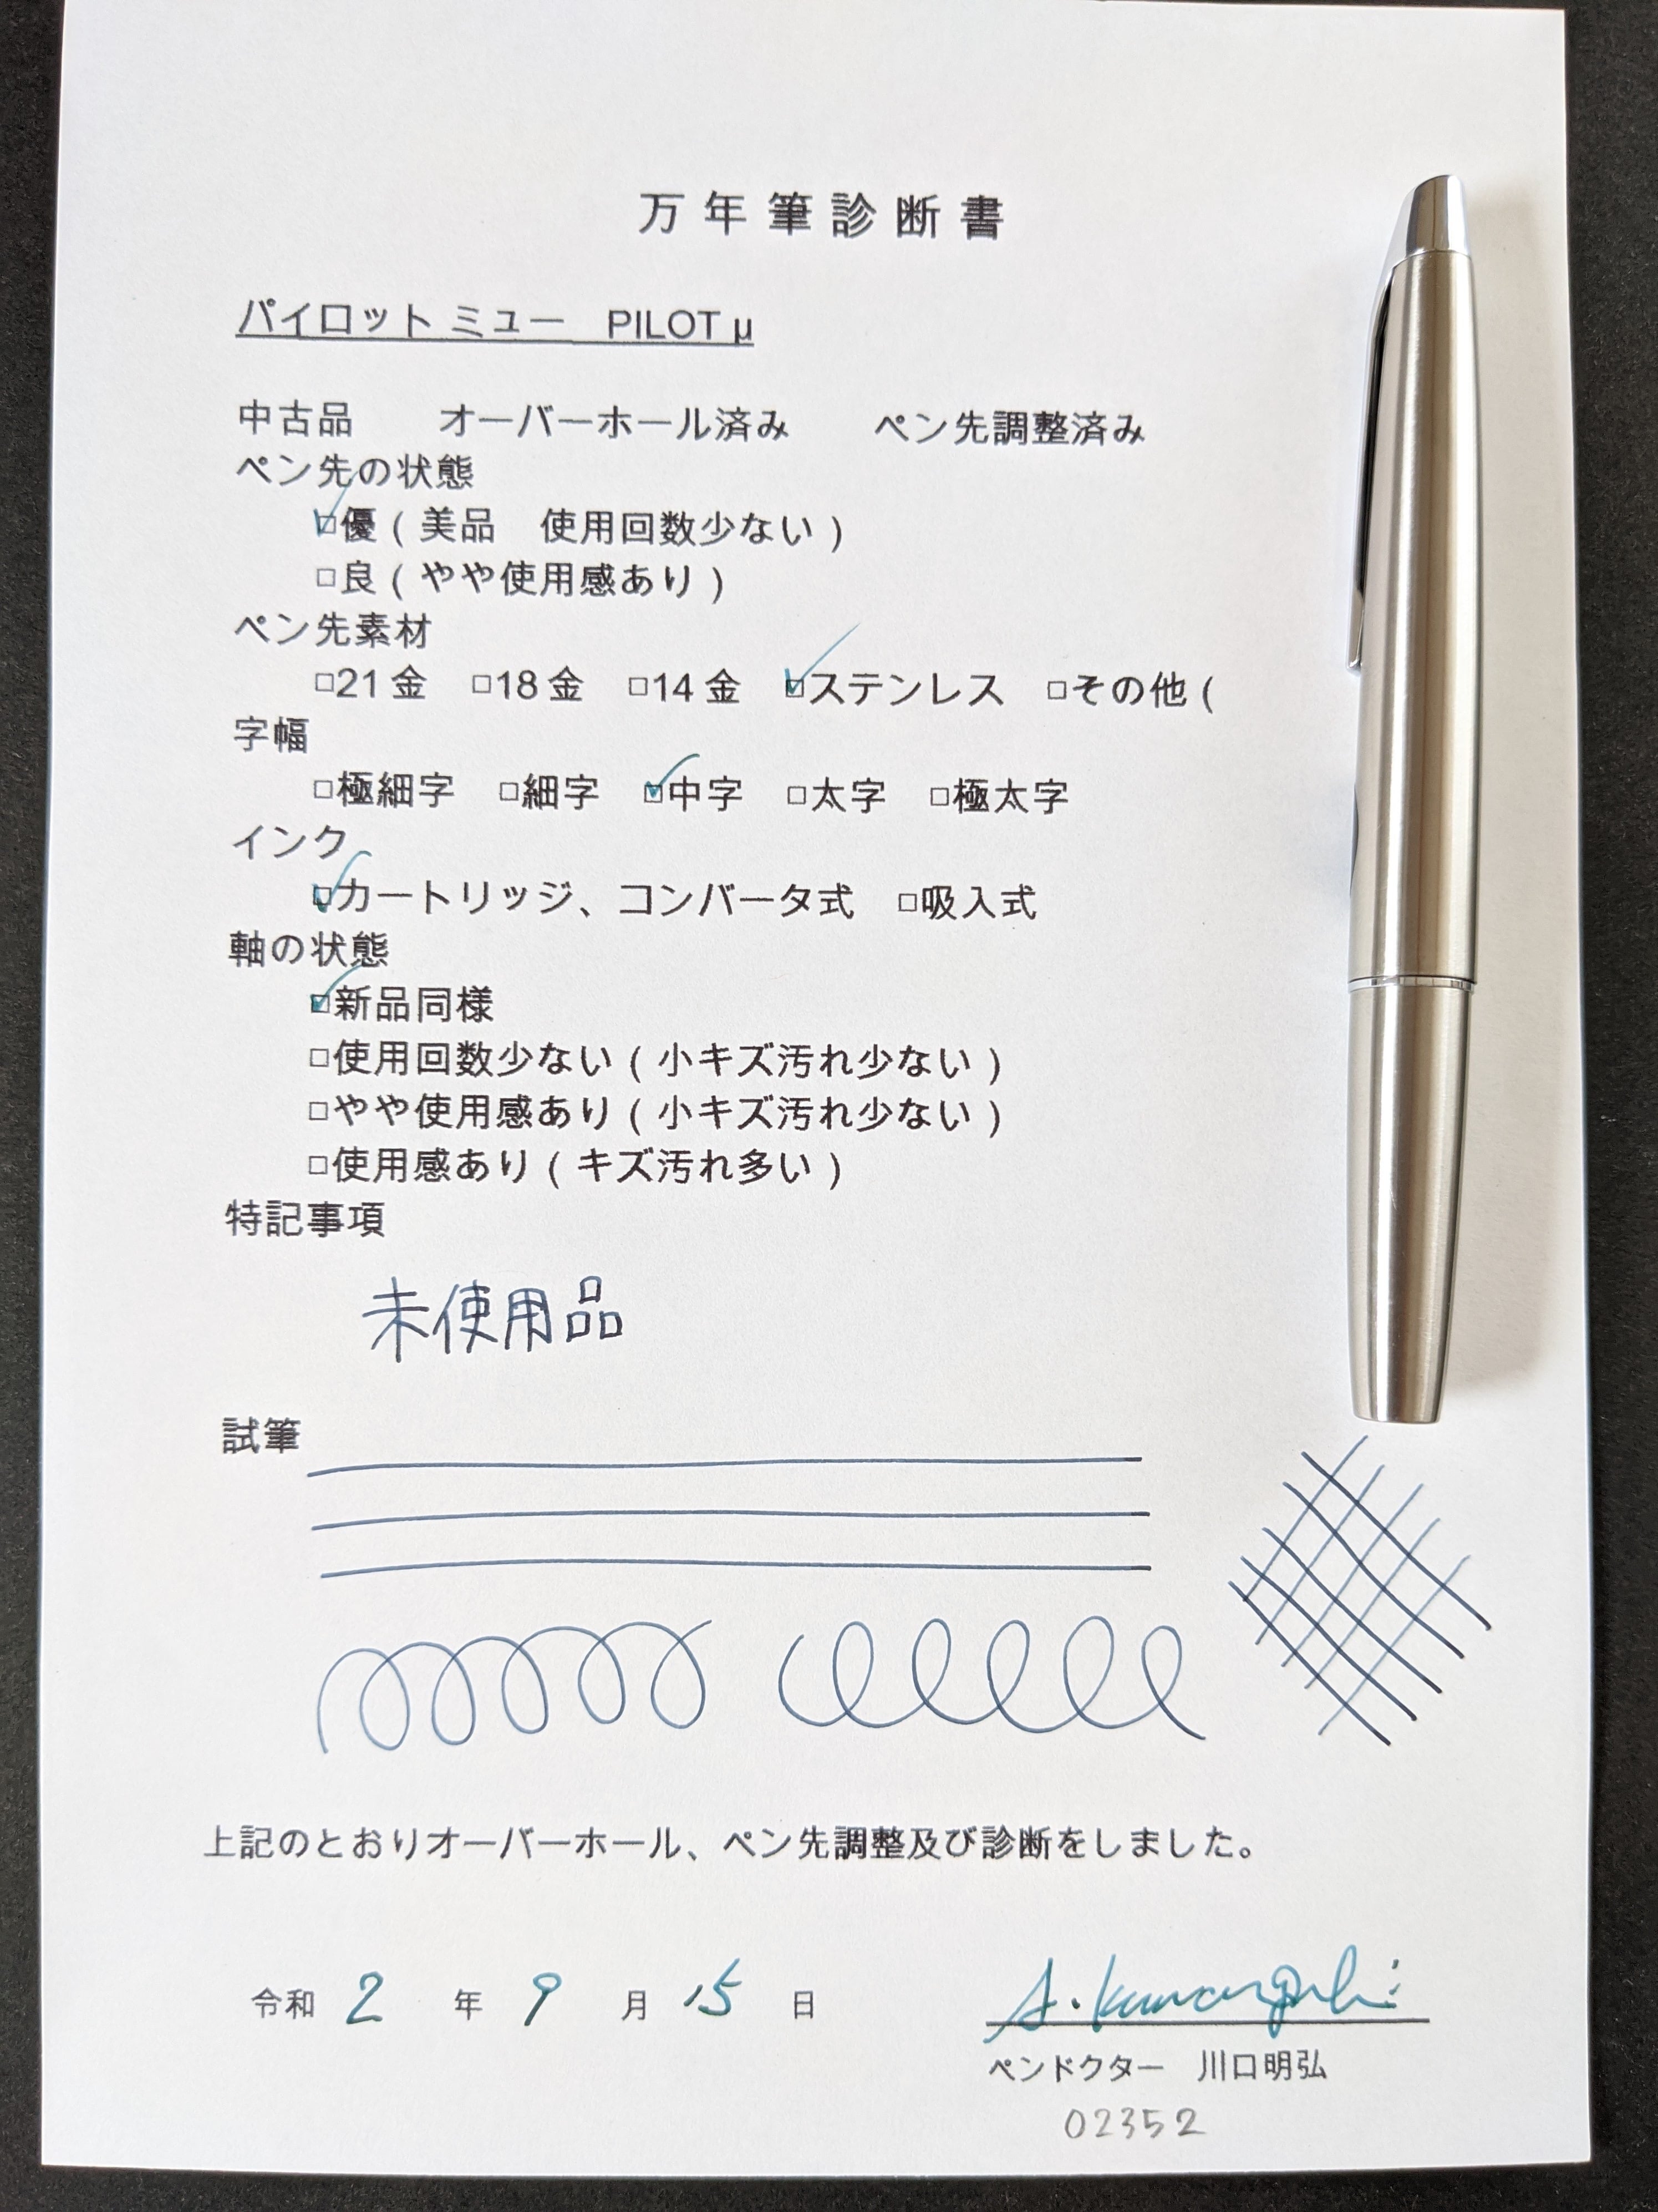 万年筆診断書
パイロット ミュー　PILOT μ
中古品　　オーバーホール済み　　ペン先調整済み
ペン先の状態
☑優（美品　使用回数少ない）
□良（やや使用感あり）
ペン先素材
□21金　□18金　□14金　☑ステンレス　□その他（
字幅
□極細字　□細字　☑中字　□太字　□極太字
インク
☑カートリッジ、コンバータ式　□吸入式
軸の状態
☑新品同様
□使用回数少ない（小キズ汚れ少ない）
□やや使用感あり（小キズ汚れ少ない）
□使用感あり（キズ汚れ多い）
特記事項
未使用品
試筆
上記のとおりオーバーホール、ペン先調整及び診断をしました。
令和 2 年 9 月 15 日
A. Kawaguchi
ペンドクター　川口明弘
02352